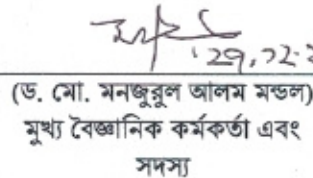 (ড. মো. মনজুরুল আলম মন্ডল)
মুখ্য বৈজ্ঞানিক কর্মকর্তা এবং
সদস্য